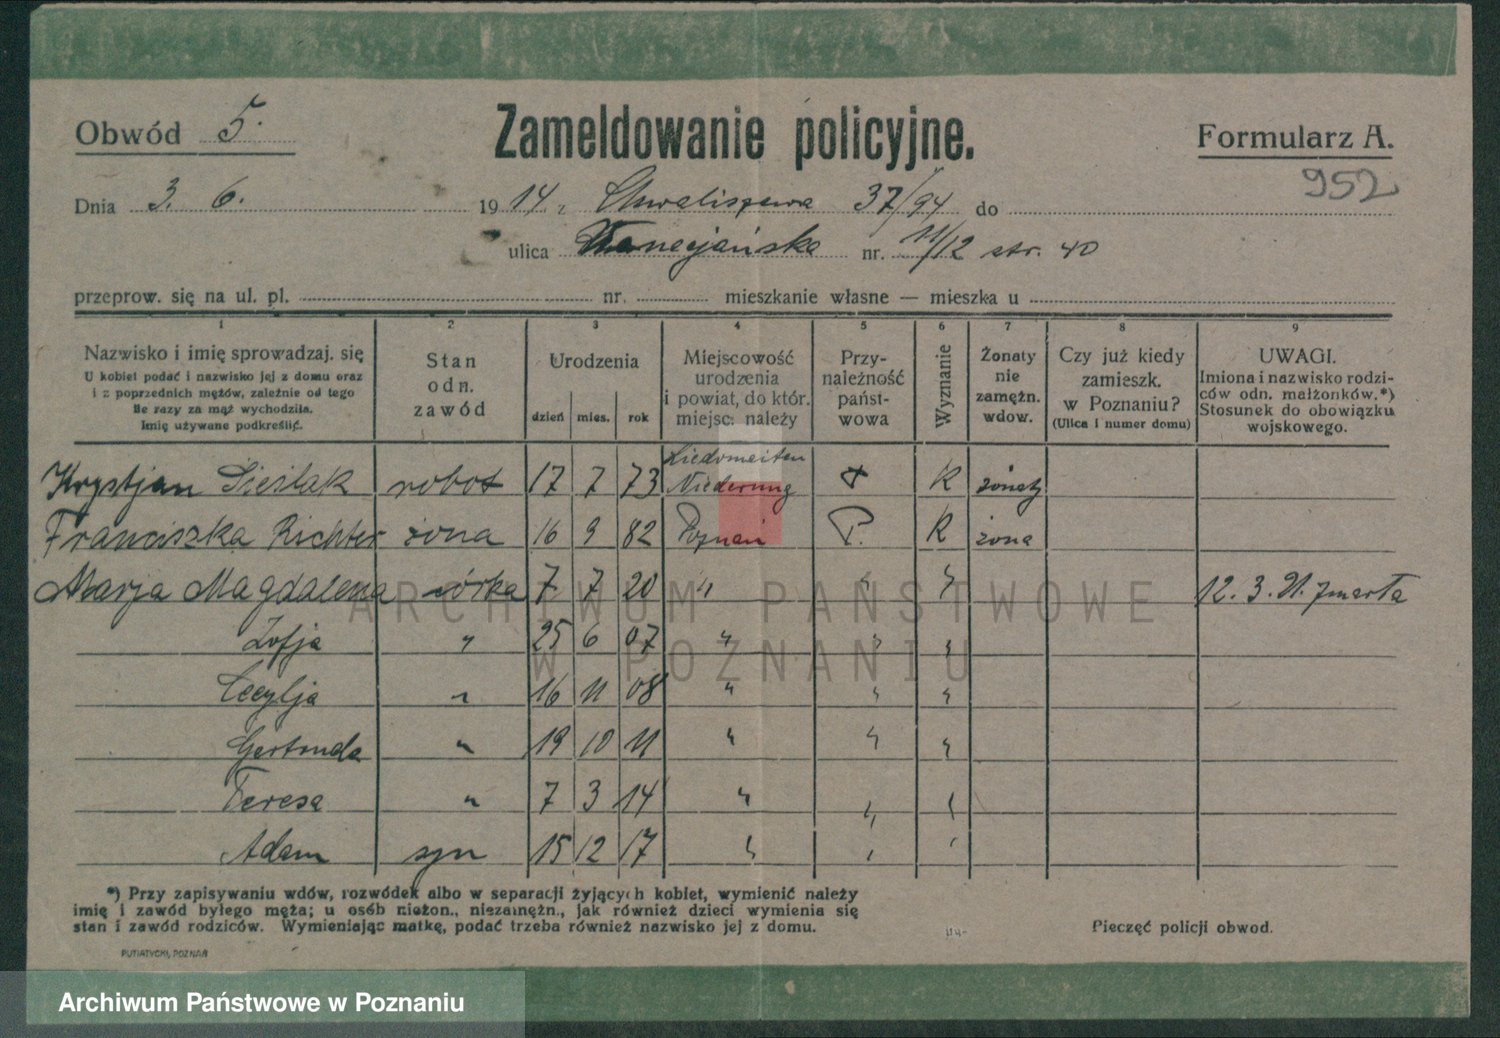 Obwód 5. Zameldowanie policyjne. Formularz A.
952
Dnia 3. 6. 1914 z Chwaliszewa 37/94 do
ulica Wenecjańska nr. 11/12 str. 40
przeprow. się na ul. pl. nr. mieszkanie własne — mieszka u
1 2 3 4 5 6 7 8 9
Nazwisko i imię sprowadzaj. się
U kobiet podać i nazwisko jej z domu oraz
i z poprzednich mężów, zależnie od tego
ile razy za mąż wychodziła.
Imię używane podkreślić.
Stan
odn.
zawód
Urodzenia
dzień mies. rok
Miejscowość
urodzenia
i powiat, do któr.
miejsc. należy
Przy-
należność
państ-
wowa
Wyznanie
Żonaty
nie
zamężn.
wdow.
Czy już kiedy
zamieszk.
w Poznaniu?
(Ulica i numer domu)
UWAGI.
Imiona i nazwisko rodzi-
ców odn. małżonków.*)
Stosunek do obowiązku
wojskowego.
Krystjan Cieślak robot 17 7 73 Niederung K żonaty
Franciszka Richter żona 16 9 82 Poznań P. K żona
Marja Magdalena córka 7 7 20 " " " 12. 3. 21. zmarła
Zofja " 25 6 07 " " "
Cecylja " 16 11 08 " " "
Gertruda " 19 10 11 " " "
Teresa " 7 3 14 " " "
Adam syn 15 12 17 " " "
*) Przy zapisywaniu wdów, rozwódek albo w separacji żyjących kobiet, wymienić należy
imię i zawód byłego męża; u osób nieżon., niezamężn., jak również dzieci wymienia się
stan i zawód rodziców. Wymieniając matkę, podać trzeba również nazwisko jej z domu.
Pieczęć policji obwod.
PUTIATYCKI, POZNAŃ
ARCHIWUM PAŃSTWOWE
W POZNANIU
Archiwum Państwowe w Poznaniu